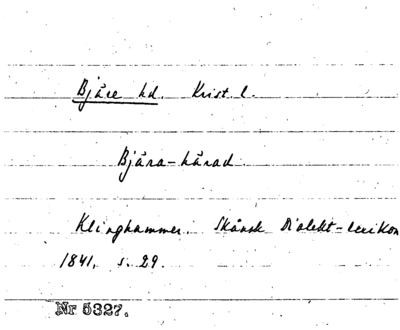 Bjäre hd. Krist. l.
Bjära-härad
Klinghammer. Skånsk Dialekt-lexikon
1841, s. 29.
Nr 5327.